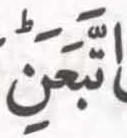 اتَّبَعَنِؕ